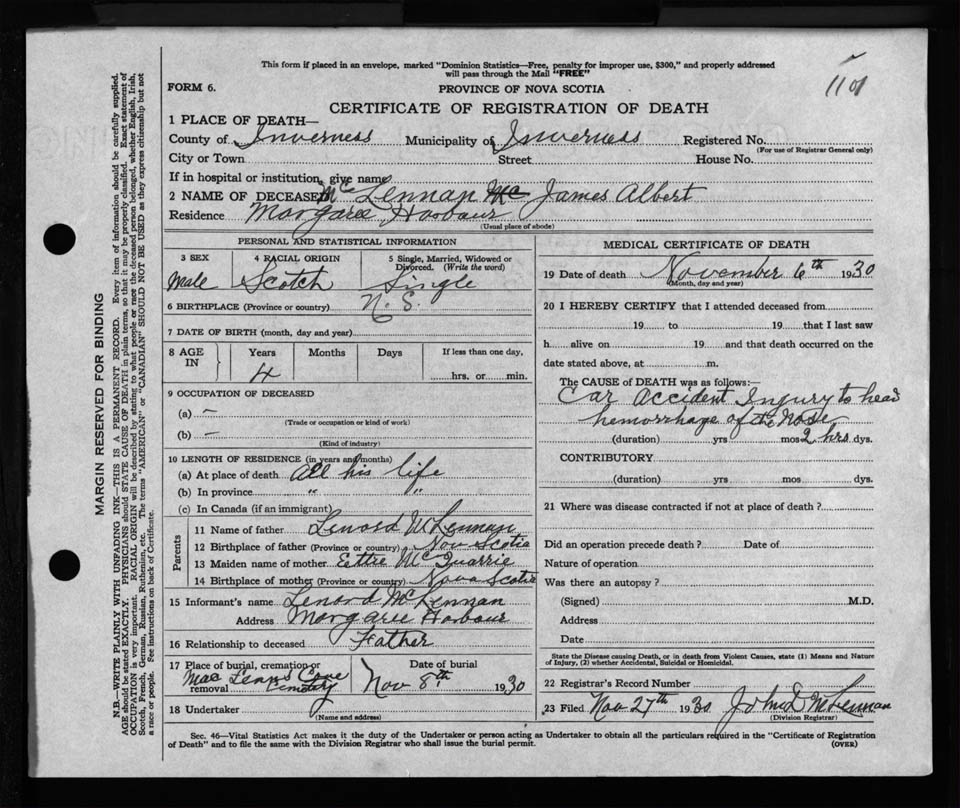 This form if placed in an envelope, marked "Dominion Statistics—Free, penalty for improper use, $300," and properly addressed
will pass through the Mail "FREE"
1101
FORM 6.
PROVINCE OF NOVA SCOTIA
CERTIFICATE OF REGISTRATION OF DEATH
1 PLACE OF DEATH—
County of Inverness Municipality of Inverness Registered No.
(For use of Registrar General only)
City or Town Street House No.
If in hospital or institution, give name
2 NAME OF DECEASED McLennan Mc James Albert
Residence Margaree Harbour
(Usual place of abode)
PERSONAL AND STATISTICAL INFORMATION
3 SEX 4 RACIAL ORIGIN 5 Single, Married, Widowed or
Divorced. (Write the word)
Male Scotch Single
6 BIRTHPLACE (Province or country) N. S.
7 DATE OF BIRTH (month, day and year)
8 AGE IN Years Months Days If less than one day,
4 hrs. or min.
9 OCCUPATION OF DECEASED
(a) —
(Trade or occupation or kind of work)
(b) —
(Kind of industry)
10 LENGTH OF RESIDENCE (in years and months)
(a) At place of death All his life
(b) In province " "
(c) In Canada (if an immigrant)
Parents
11 Name of father Lenord McLennan
12 Birthplace of father (Province or country) Nov Scotia
13 Maiden name of mother Ettie McQuarrie
14 Birthplace of mother (Province or country) Nova Scotia
15 Informant's name Lenord McLennan
Address Margaree Harbour
16 Relationship to deceased Father
17 Place of burial, cremation or Date of burial
removal Mac Leans Cove
Cemetery Nov 8th 1930
18 Undertaker
(Name and address)
MEDICAL CERTIFICATE OF DEATH
19 Date of death November 6th 1930
(Month, day and year)
20 I HEREBY CERTIFY that I attended deceased from
19 to 19 that I last saw
h alive on 19 and that death occurred on the
date stated above, at m.
The CAUSE OF DEATH was as follows:—
Car Accident Injury to head
hemorrhage of the Nose
(duration) yrs mos 2 hrs dys.
CONTRIBUTORY
(duration) yrs mos dys.
21 Where was disease contracted if not at place of death?
Did an operation precede death? Date of
Nature of operation
Was there an autopsy?
(Signed) M.D.
Address
Date
State the Disease causing Death, or in death from Violent Causes, state (1) Means and Nature
of Injury, (2) whether Accidental, Suicidal or Homicidal.
22 Registrar's Record Number
23 Filed Nov 27th 1930 John D McLennan
(Division Registrar)
Sec. 46—Vital Statistics Act makes it the duty of the Undertaker or person acting as Undertaker to obtain all the particulars required in the "Certificate of Registration
of Death" and to file the same with the Division Registrar who shall issue the burial permit. (OVER)
MARGIN RESERVED FOR BINDING
N.B.—WRITE PLAINLY WITH UNFADING INK—THIS IS A PERMANENT RECORD. Every item of information should be carefully supplied.
AGE should be stated EXACTLY. PHYSICIANS should STATE CAUSE OF DEATH in plain terms, so that it may be properly classified. Exact statement of
OCCUPATION is very important. RACIAL ORIGIN will be described by stating to what people or race the deceased person belonged, whether English, Irish,
Scotch, French, German, Russian, Ruthenian, etc. The terms "AMERICAN" or "CANADIAN" SHOULD NOT BE USED as they express citizenship but not
a race or people. See instructions on back of Certificate.